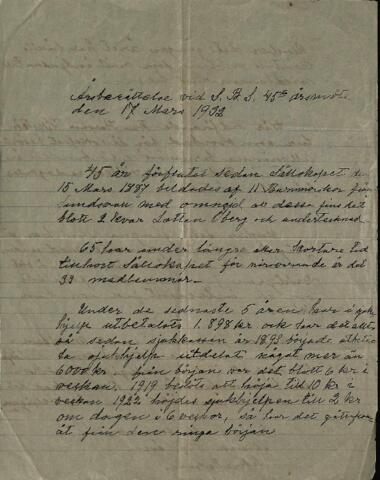 Årsberättelse vid S. B. S. 45te årsmöte
den 17 Mars 1932
45 år förflutet sedan Sällskapet d
15 Mars 1887 bildades af 11 Barnmorskor från
Sundsvall med omnejd af dessa fins det
blott 2 kvar Lotten Öberg och undertecknad
65 har under längre eller kortare tid
tillhört Sällskapet för närvarande är det
33 medlemmar
Under de sednaste 5 åren har i sjuk
hjelp utbetalats 1.898 kr och har det allt
så sedan sjukkassan år 1893 började
sjukhjelp utdelat något mer än
6000 kr. från början var det blott 6 kr i
veckan, 1919 beslöts att höja till 10 kr i
veckan 1922 höjdes sjukhjelpen till 2 kr
om dagen i 6 veckor, så har det gått
åt från den ringa början